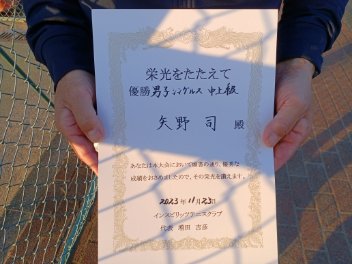 栄光をたたえて
優勝 男子シングルス 中上級
矢野 司 殿
あなたは本大会において頭書の通り、優秀な
成績をおさめましたので、その栄光を讃えます。
2023年11月23日
インスピリッツテニスクラブ
代表